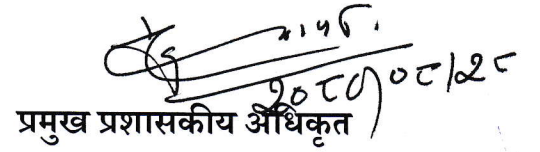 २०८१।०८।२८
प्रमुख प्रशासकीय अधिकृत